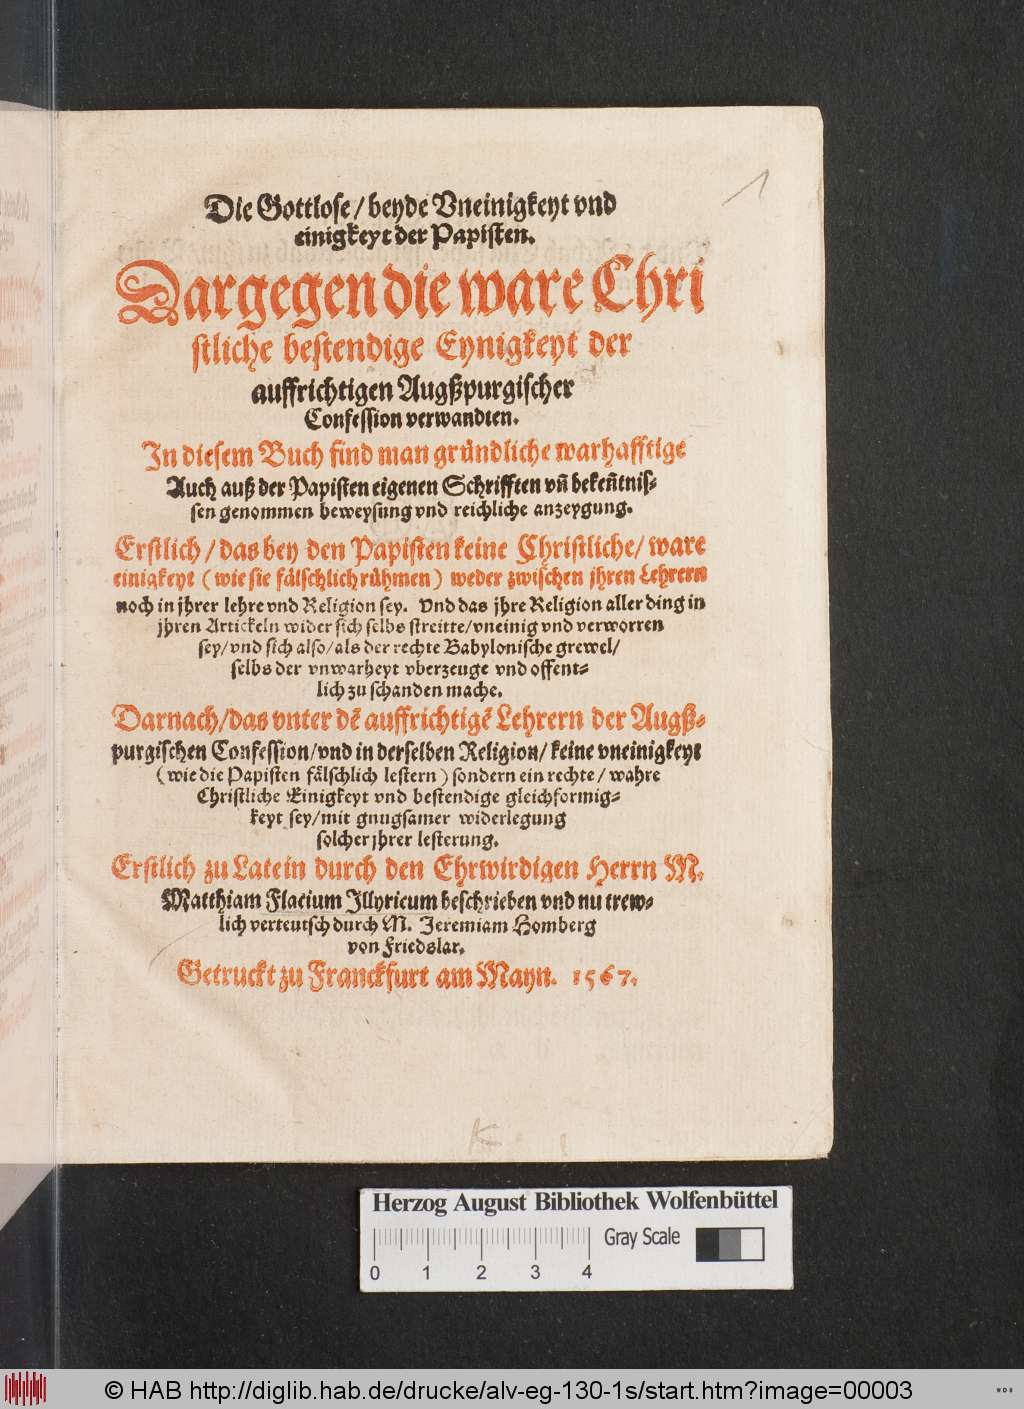 1
Die Gottlose / beyde Vneinigkeyt vnd
einigkeyt der Papisten.
Dargegen die ware Chri
stliche bestendige Eynigkeyt der
auffrichtigen Augßpurgischer
Confession verwandten.
In diesem Buch find man gründliche warhafftige
Auch auß der Papisten eigenen Schrifften vñ bekeñtnis-
sen genommen beweysung vnd reichliche anzeygung.
Erstlich / das bey den Papisten keine Christliche / ware
einigkeyt (wie sie fälschlich rühmen) weder zwischen jhren Lehrern
noch in jhrer lehre vnd Religion sey. Vnd das jhre Religion aller ding in
jhren Artickeln wider sich selbs streitte / vneinig vnd verworren
sey / vnd sich also / als der rechte Babylonische grewel /
selbs der vnwarheyt vberzeuge vnd offent-
lich zu schanden mache.
Darnach / das vnter dē auffrichtigē Lehrern der Augß-
purgischen Confession / vnd in derselben Religion / keine vneinigkeyt
(wie die Papisten fälschlich lestern) sondern ein rechte / wahre
Christliche Einigkeyt vnd bestendige gleichformig-
keyt sey / mit gnugsamer widerlegung
solcher jhrer lesterung.
Erstlich zu Latein durch den Ehrwirdigen Herrn M.
Matthiam Flacium Illyricum beschrieben vnd nu trew-
lich verteutsch durch M. Jeremiam Homberg
von Friedslar.
Getruckt zu Franckfurt am Mayn. 1567.
K
Herzog August Bibliothek Wolfenbüttel
Gray Scale
0 1 2 3 4
© HAB http://diglib.hab.de/drucke/alv-eg-130-1s/start.htm?image=00003